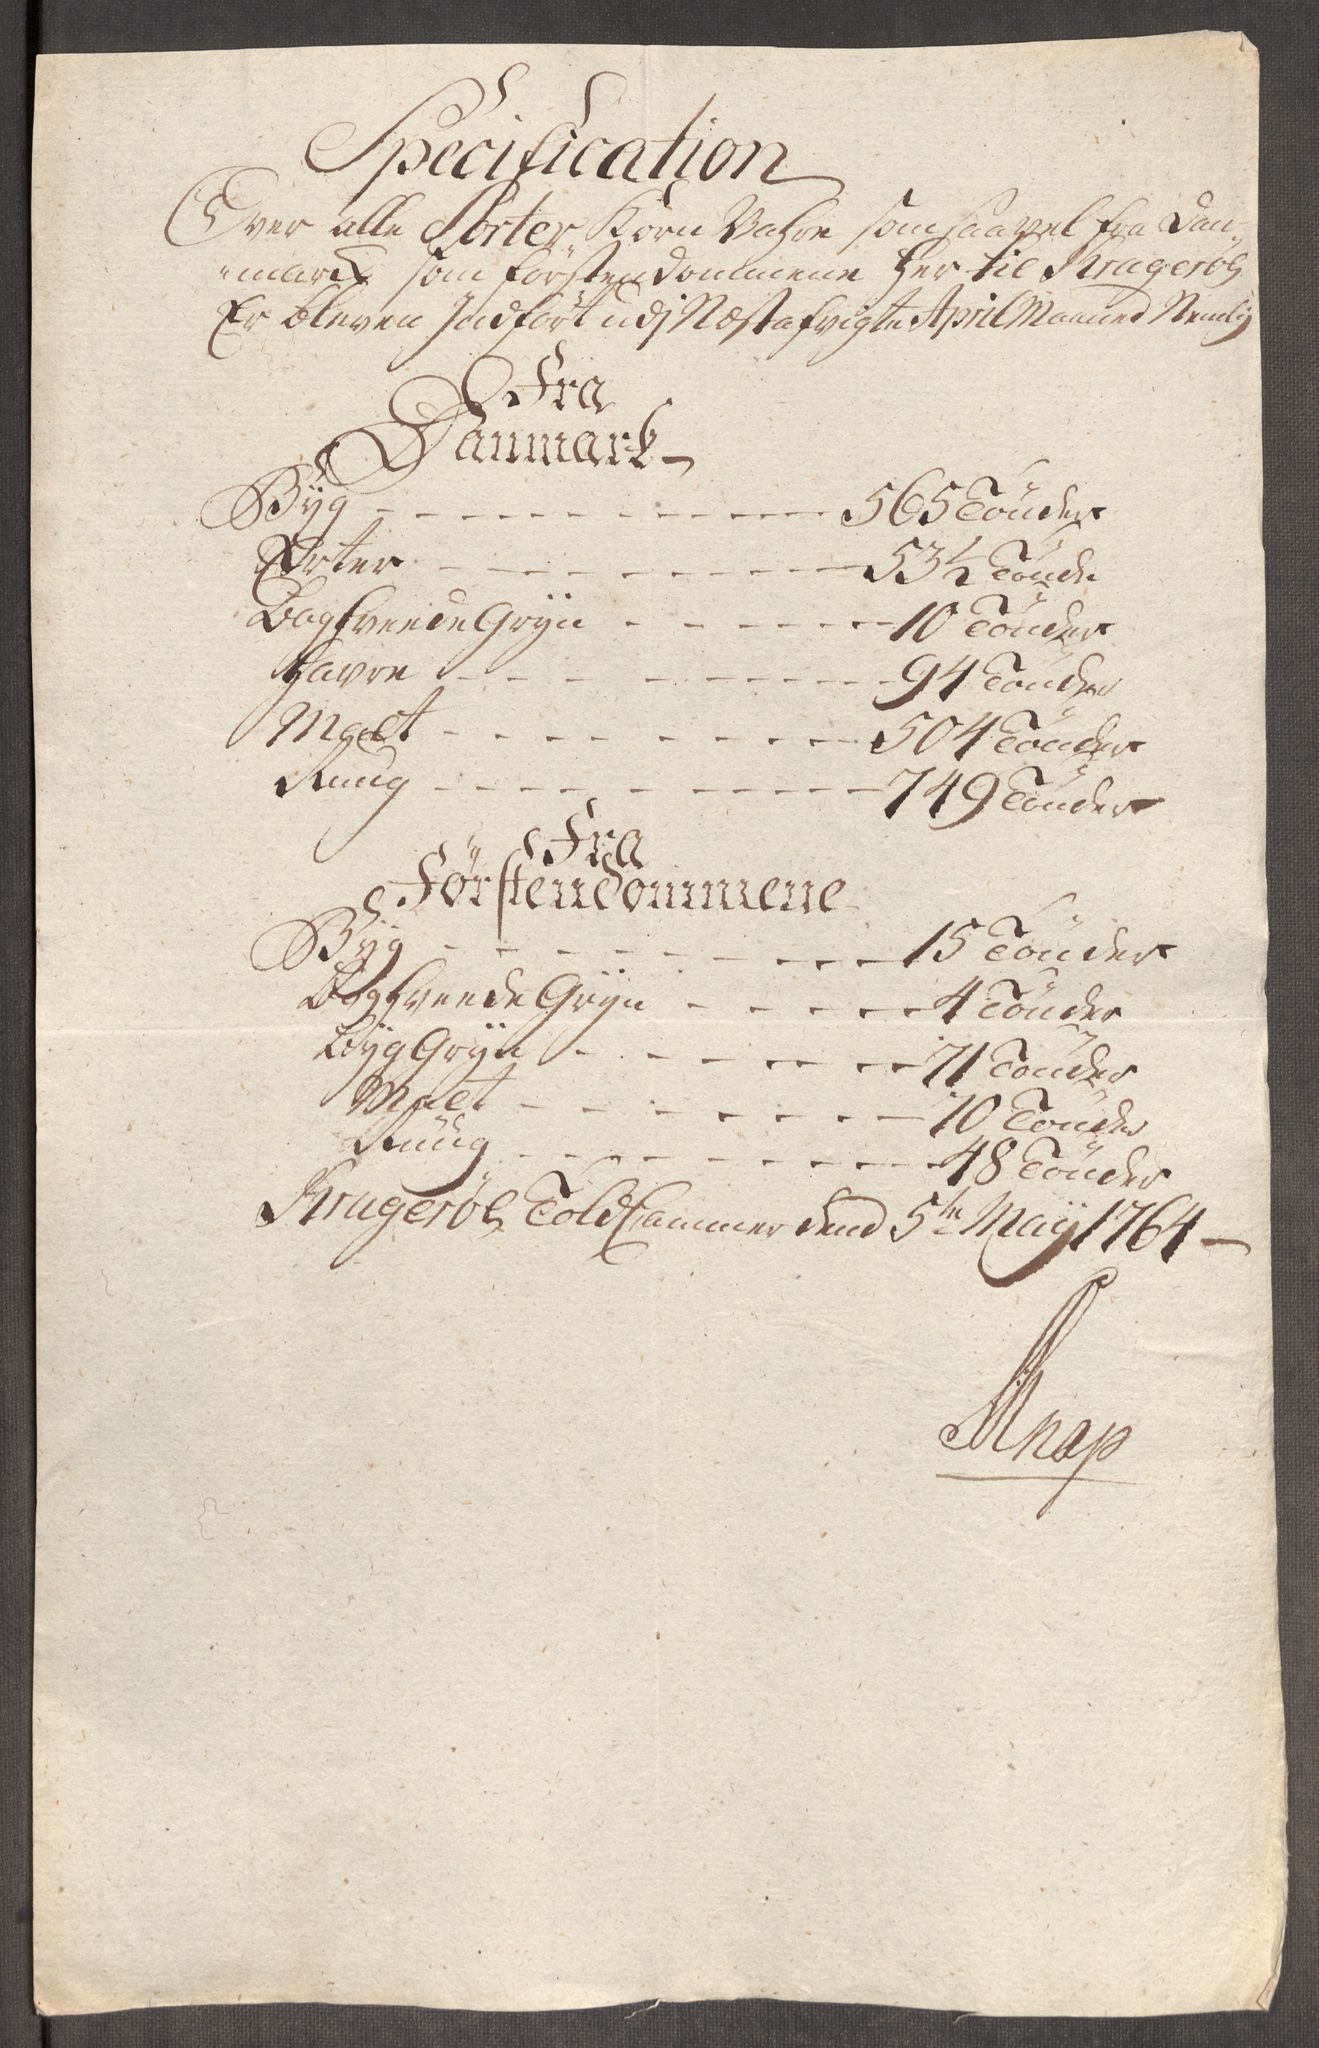 Specification
Over alle Sorter Korn Vahre som saavel fra Dan-
mark som Førstendommene her til Kragerøe
Er bleven Indført udj Næst afvigte April Maaned Nemlig
Fra
Danmark
Byg - - - - - - - - - - - 565 Tönder
Erter - - - - - - - - - - - 53½ Tönde
Boghveede Gryn - - - - - - - 10 Tönder
Havre - - - - - - - - - - 94 Tönder
Malt - - - - - - - - - 504 Tönder
Ruug - - - - - - - - - - 749 Tönder
Fra
Førstendommene
Byg - - - - - - - - - 15 Tönder
Boghveede Gryn - - - - - 4 Tönder
Byg Gryn - - - - - - 71 Tönder
Malt - - - - - - - - 10 Tönder
Ruug - - - - - - - - - 48 Tönder
Kragerøe Told Cammer dend 5te Maij 1764
Knap